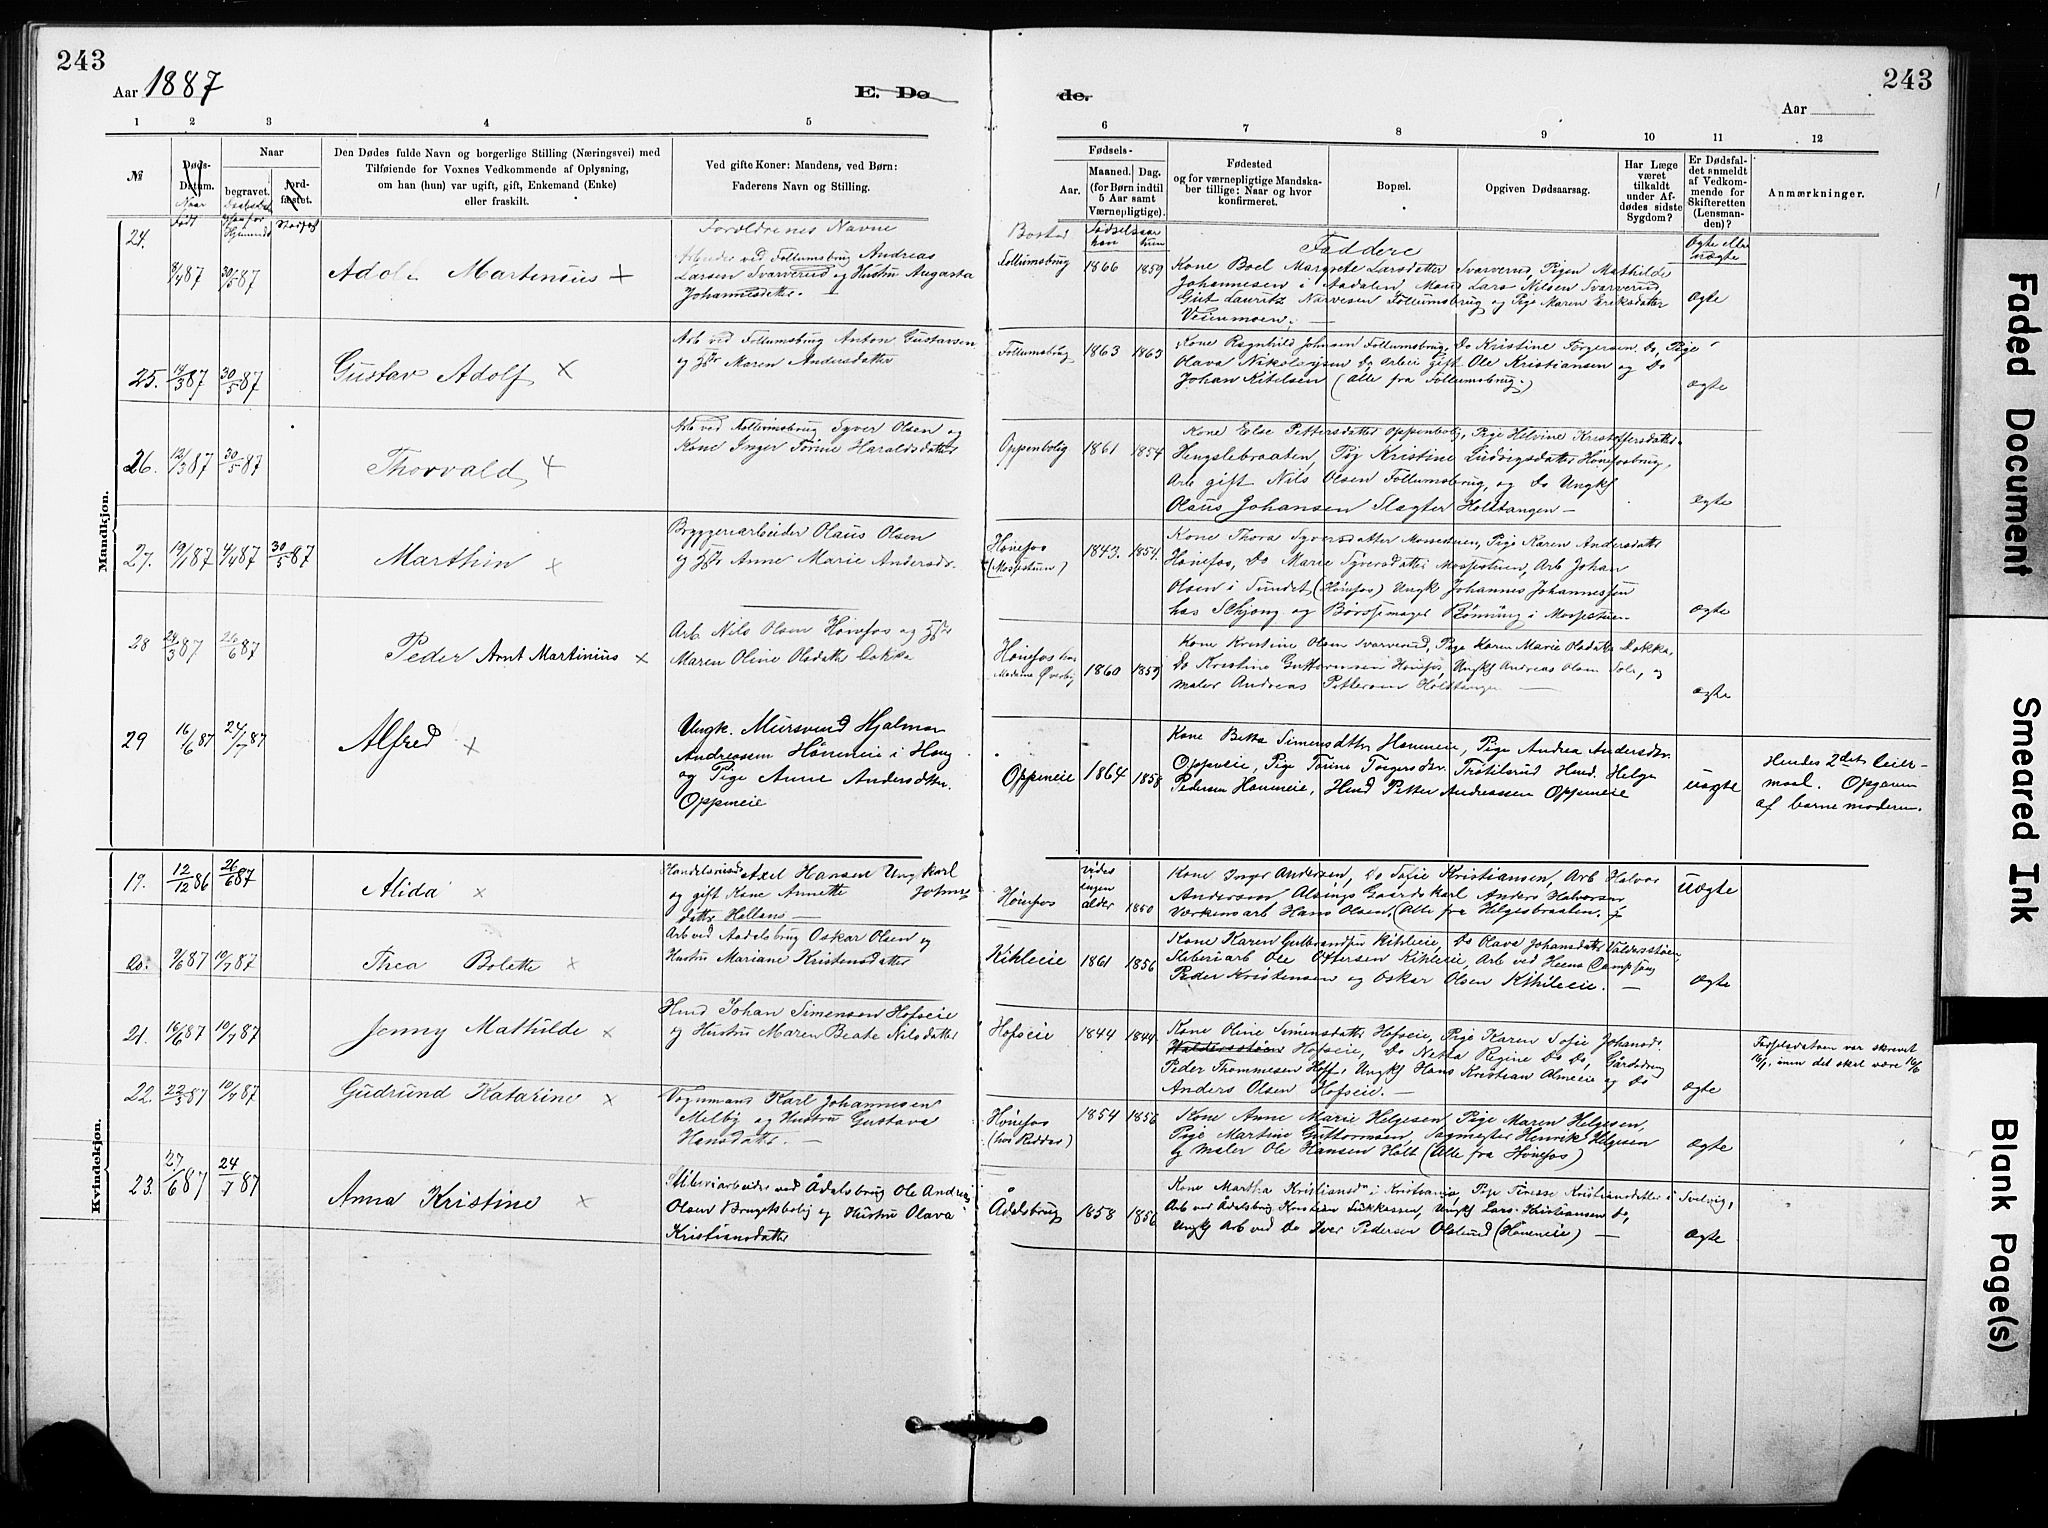 243
Aar 1887
E. Dø
1 2 3 4 5
№
Døds-
Datum.
Naar
Født
Naar
begravet.
jord-
fæstet.
Hjemmed
Den Dødes fulde Navn og borgerlige Stilling (Næringsvei) med
Tilføiende for Voxnes Vedkommende af Oplysning,
om han (hun) var ugift, gift, Enkemand (Enke)
eller fraskilt.
Ved gifte Koner: Mandens, ved Børn:
Faderens Navn og Stilling.
Forældrenes Navne
Mandkjøn.
24.
8/4 87 30/5 87
Adolf Martinius +
Arbeider ved Follumsbrug Andreas
Larsen Svarverud og Hustru Augusta
Johannesdatter. —
25. 14/3 87 30/5 87
Gustav Adolf ×
Arb ved Follumsbrug Anton Gustavsen
og Hst Maren Andersdatter
26. 12/3 87 30/5 87
Thorvald +
Arb ved Follumsbrug Syver Olsen og
Kone Inger Torine Haraldsdatter
27. 19/1 87 4/4 87 30/5 87
Marthin ×
Bryggeriarbeider Olaus Olsen
og Hst Anne Marie Andersdr.
28 24/3 87 26/6 87
Peder Arnt Martinius ×
Arb. Nils Olsen Hønefos og Hst
Maren Oline Olsdatter Dokka
29 16/6 87 24/7 87
Alfred ×
Ungk. Mursvend Hjalmar
Andreassen Høneneie i Haug
og Pige Anne Andersdtter
Oppeneie
Kvindekjøn.
19. 12/12 86 26/6 87
Alida ×
Handelsmand Axel Hansen Ungkarl
og gift Kone Annette Johns
datter Hollans —
20. 9/6 87 10/7 87
Thea Bolette ×
Arb ved Aadalsbrug Oskar Olsen og
Hustru Mariane Kristensdatter
21. 16/6 87 10/7 87
Jenny Mathilde ×
Hmd Johan Simensen Hofseie
og Hustru Maren Beate Nilsdatter
22. 22/3 87 10/7 87
Gudrund Katarine ×
Vognmans Karl Johannesen
Melby og Hustru Gustava
Hansdatter. —
23. 27/6 87 24/7 87
Anna Kristine ×
Sliberiarbeider ved Ådalsbrug Ole Andreas
Olsen Brugetsbolig og Hustru Olava
Kristiansdatter
243
de.
Aar
6 7 8 9 10 11 12
Fødsels-
Aar.
Maaned. Dag.
(for Børn indtil
5 Aar samt
Værnepligtige).
Fødested
og for værnepligtige Mandska-
ber tillige: Naar og hvor
konfirmeret.
Bopæl.
Opgiven Dødsaarsag.
Har Læge
været
tilkaldt
under Af-
dødes sidste
Sygdom?
Er Dødsfal-
det anmeldt
af Vedkom-
mende for
Skifteretten
(Lensman-
den)?
Anmærkninger.
Bosted
Fødselsaar
han hun
Faddere
Ægte eller
uægte
Follumsbrug 1866 1859
Kone Boel Margrete Larsdatter Svarverud, Pigen Mathilde
Johannesen i Aadalen, Mand Lars Nilsen Svarverud,
Gift Lauritz Narvesen Follumsbrug og Pige Maren Eriksdatter
Veienmoen. —
ægte
Follumsbrug 1863 1863
Kone Ragnhild Johnsen Follumsbrug, Do Kristine Torgersen Do, Pige
Olava Nikolajsen Do, Arbeid Gift Ole Kristiansen og Do
Johan Kittelsen (alle fra Follumsbrug.)
ægte
Oppenbolig 1861 1854
Kone Else Pettersdatter Oppenbolig, Pige Helvine Kristoffersdatter
Hengslebraaten, Pig Kristine Ludvigsdatter Hønefosbrug,
Arb gift Nils Olsen Follumsbrug, og Do Ungk
Olaus Johansen Slagter Holdtangen —
ægte
Hønefos
(Mosjestuen) 1843. 1854.
Kone Thora Syversdatter Momoen, Pige Karen Andersdatter
Hønefos, Do Marie Syversdatter Mosjestuen, Arb Johan
Olsen i Sundet (Hønefos) Ungk Johannes Johannessen
hos Schjong og Børssemager Rønning i Mosjestuen
ægte
Hønefos hos
Madame Øverby 1860 1859
Kone Kristine Olsen Svarverud, Pige Karen Marie Olsdatter Dokka,
Do Kristine Guttormsen Hønefos, Ungk Andreas Olsen Sole, og
maler Andreas Pettersen Holdtangen —
ægte
Oppeneie 1864 1858
Kone Betta Simensdtter Honeneie, Pige Andrea Andersdtr.
Oppeneie, Pige Torine Torgersdtr. Trøtilsrud Hmd. Helge
Pedersen Honeneie, Hmd Petter Andreassen Oppeneie
uægte
Hendes 2det leier-
maal. Opgaven
af barnemoderen.
Hønefos
vides
ingen
alder 1850
Kone Inger Andersen, Do Sofie Kristiansen, Arb Halvor
Anderson Alsings Gaardskarl Anders Halvorsen,
Værkensarb. Hans Olsen. (Alle fra Helgesbraaten.)
uægte
Kihleeie 1861 1856
Kone Karen Gulbrandsen Kihleeie, Do Olava Johansdatter Valdersstøen
Sliberiarb Ole Ottersen Kihleeie, Arb ved Heens Dampsag
Peder Kristensen og Oskar Olsen Kihleeie. —
ægte
Hofseie 1844 1844
Kone Oline Simensdatter Hofseie, Pige Karen Sofie Johansd.
Valdersstøen Hofseie, Do Netta Regine Do Do, Gårdsdreng
Peder Thommesen Hoff, Ungk Hans Kristian Almeie og Do
Anders Olsen Hofseie. —
ægte
Fødselsdatoen var skrevet
16/7, men det skal være 16/6
Hønefos
(hos Riddar) 1854 1856
Kone Anne Marie Helgesen, Pige Maren Helgesen,
Pige Martine Guttormsen, Sagmester Henrik Helgesen
og maler Ole Hansen Holt (Alle fra Hønefos)
ægte
Ådalsbrug 1858 1856
Kone Martha Kristiansdr i Kristiania, Pige Terese Kristiansdatter i Svelvig,
Arb ved Ådalsbrug Kristian Lukkassen, Ungk Lars Kristiansen Do,
Ungk Arb ved Do Iver Pedersen Olslund (Honeneie) —
ægte
Faded Document
Smeared Ink
Blank Page(s)